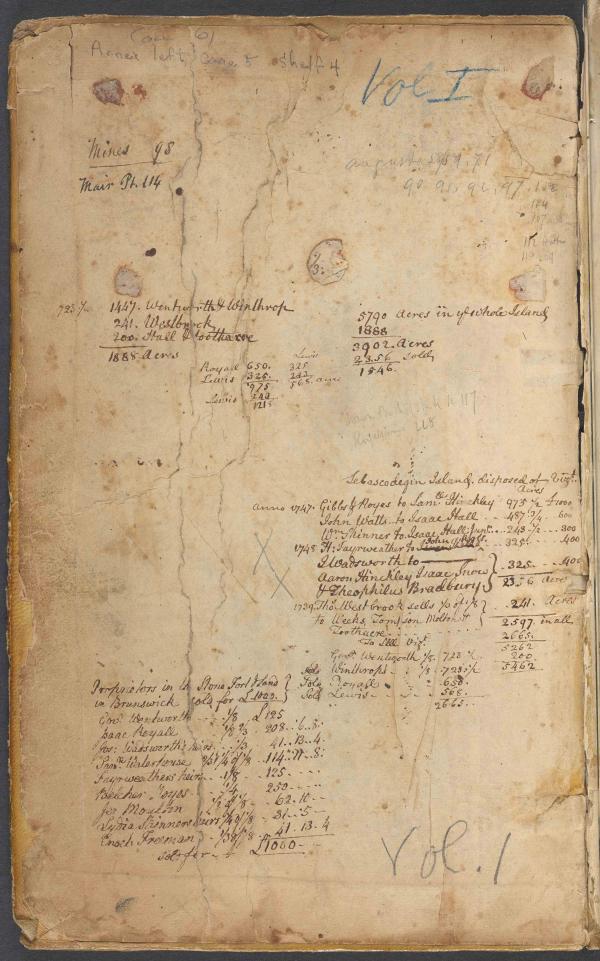 Case 61
Annex left Case 5 Shelf 4
Vol I
Mines 98
Mair Pt. 114
augusta 59.71
90 91, 92, 97. 102
723 1/2 1447. Wentworth & Winthrop
241. Westbrook
200. Hall & Toothacre
1888 Acres
Royall 650. 325
Lewis 325. 243
975 568. acres
Lewis 243
1218
Lewis
5790 Acres in ye whole Island
1888
3902. Acres
2356 sold
1546.
117
118
Sebascodegin Island, disposed of Vizt.
Acres
anno 1747. Gibbs & Noyes to Saml. Hinckley 975 1/2 £1000
John Watts to Isaac Hall 487 3/4 600
Wm. Skinner to Isaac Hall junr. 243 1/2 300
1748 H: Fayrweather to John Ross. 325. 400
J. Wadsworth to
Aaron Hinckley Isaac Snow 325 400
& Theophilus Bradbury 2356 Acres
1739 Tho. Westbrook sells 1/3 of 1/8 241. Acres
to Weeks, Tompson Molton & 2597 in all
Toothacre 2665.
To Sell Vizt. 5262
Govr. Wentworth 1/8. 723 1/2 200
Sold Winthrop 1/8 723 1/2 5462
Sold Royall 650.
Sold Lewis 568.
2665
Proprietors in the Stone Fort & land
in Brunswick sold for £1000.
Gov. Wentworth 1/8 £125
Isaac Royall 208..6..8
Jos: Wadsworth's heirs 41..13..4
Saml. Waterhouse 114..11..8
Fayrweathers heirs 1/8 125
Belcher Noyes 1/4 250
Jer Moulton 62.10
Lydia Skinners heirs 31..5
Enoch Freeman 1/3 of 1/8 41.13.4
sold for £1000
Vol. 1